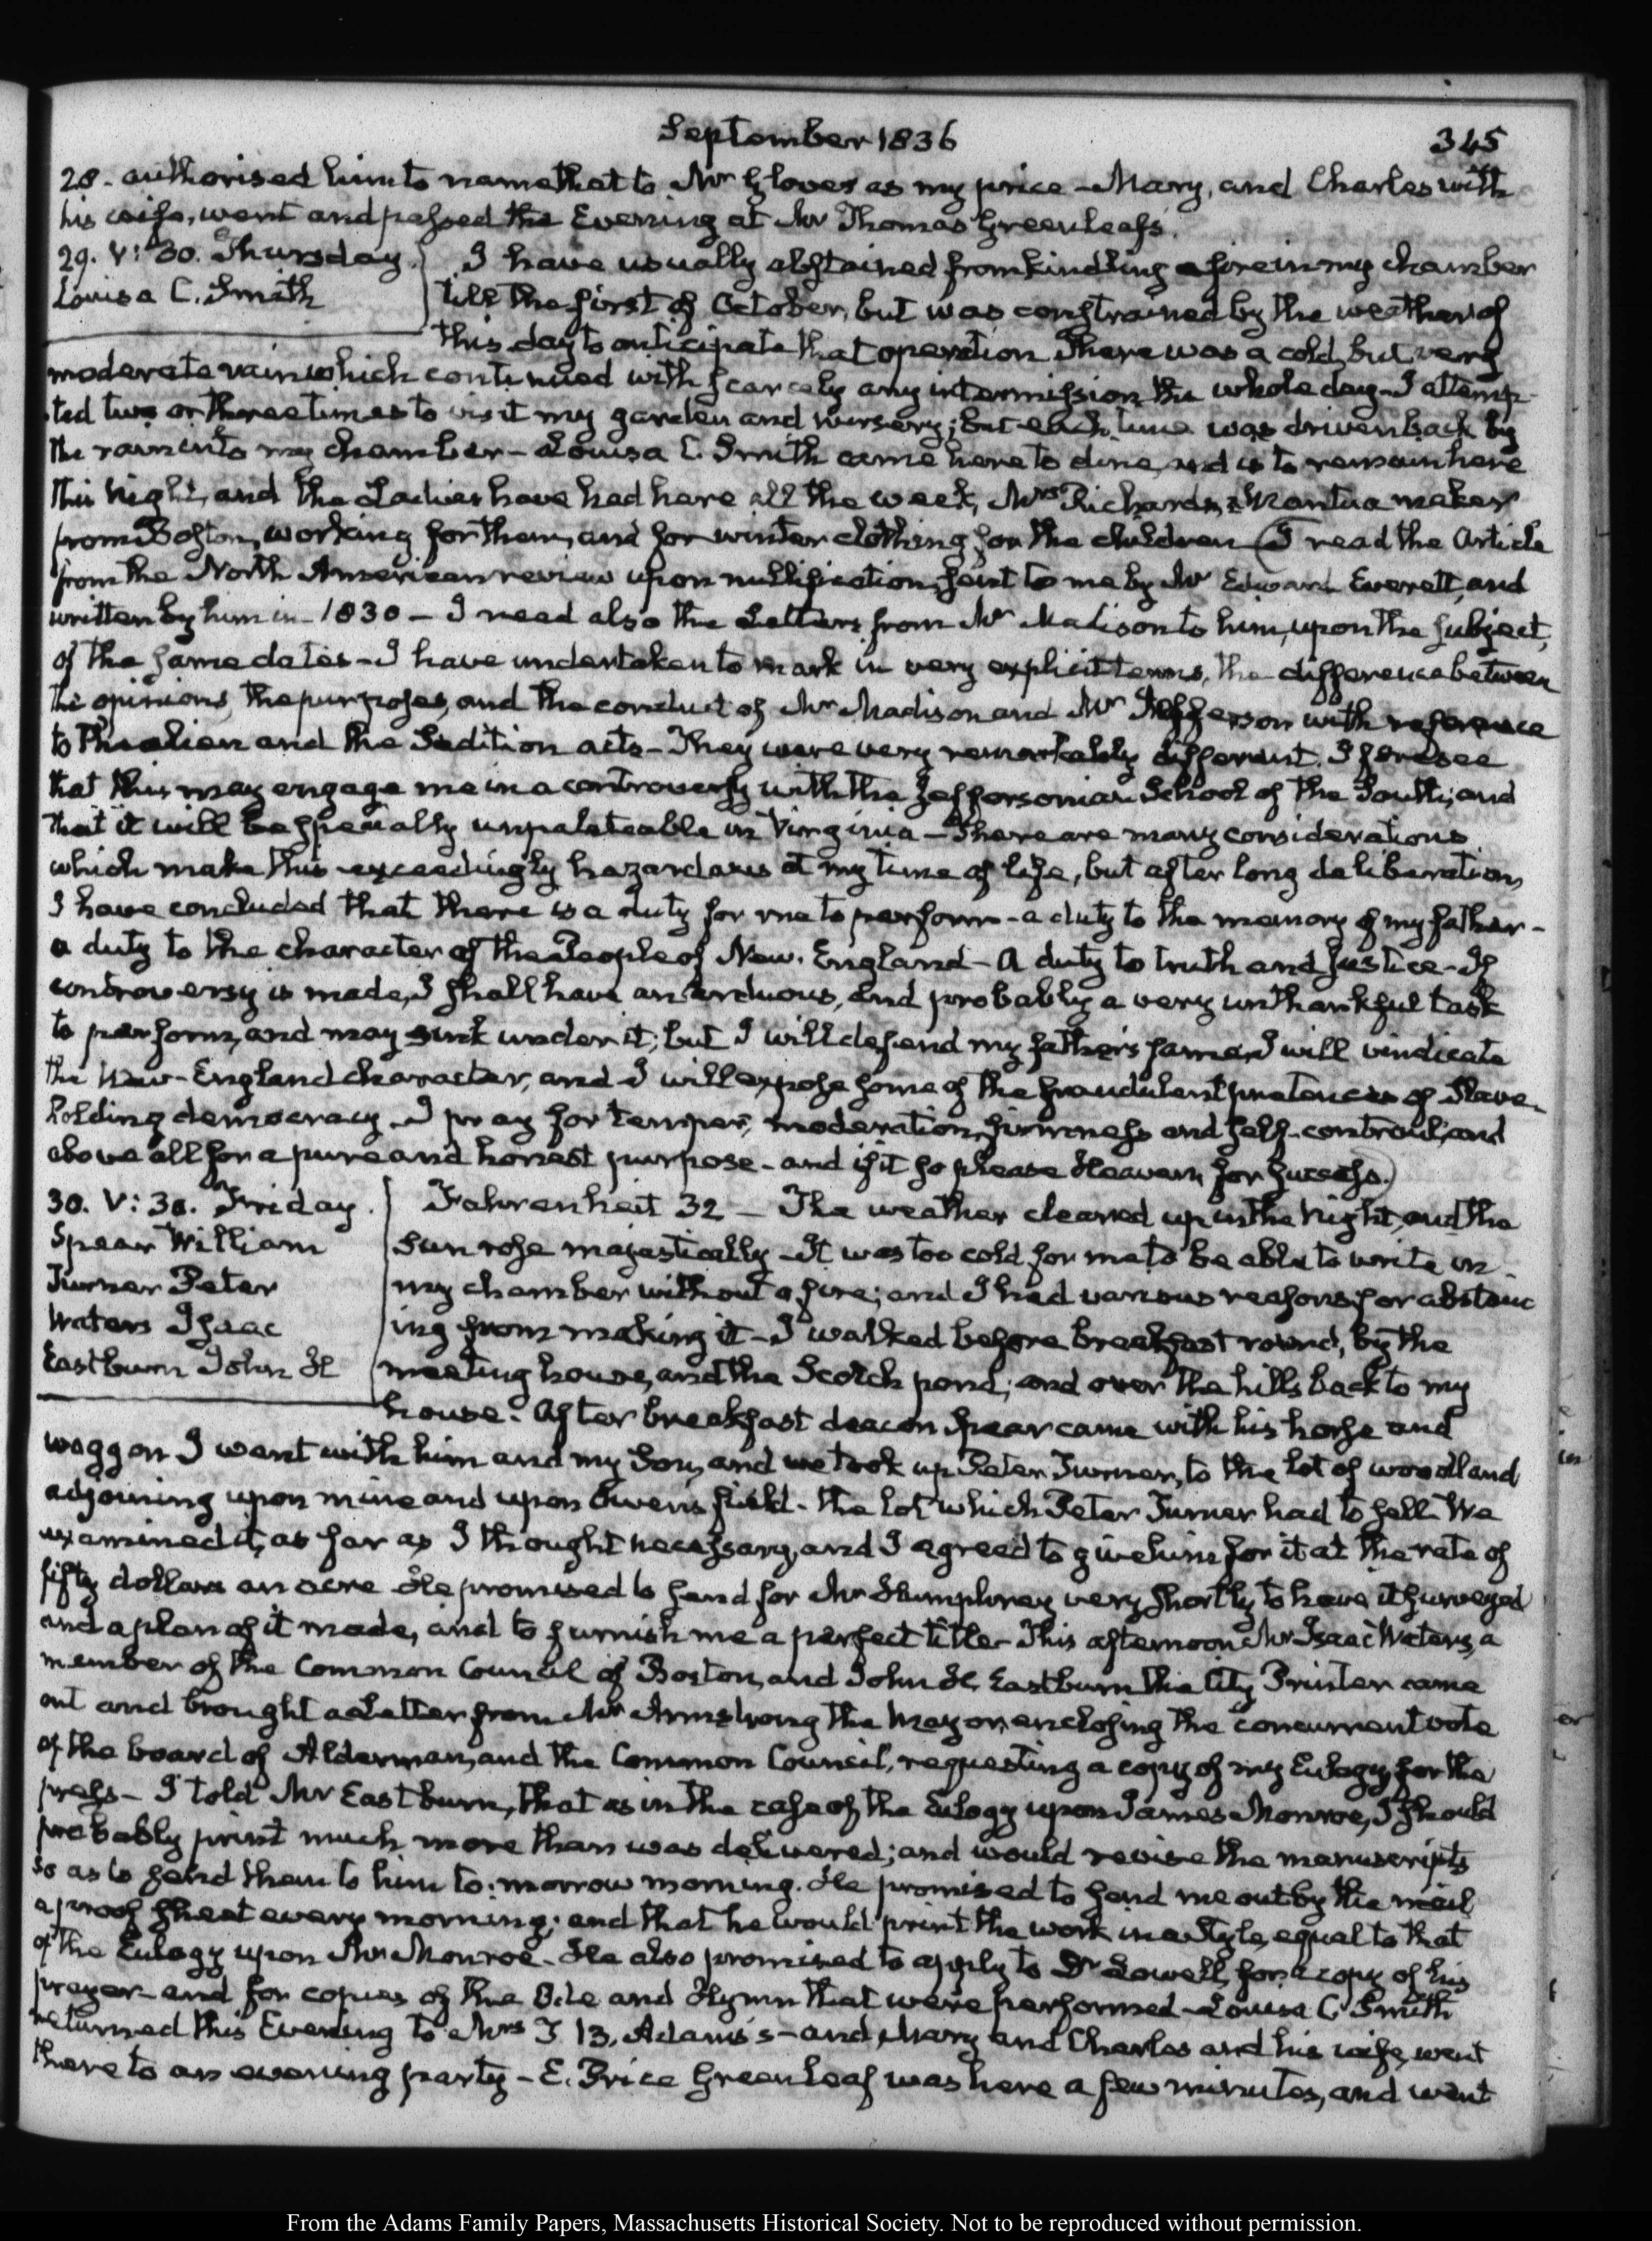 September 1836
345
28. authorised him to name that to Mr Glover as my price - Mary, and Charles with
his wife, went and passed the Evening at Mr Thomas Greenleaf's.
29. V: 30. Thursday.
Louisa C. Smith
I have usually abstained from kindling a fire in my chamber
till the first of October, but was constrained by the weather of
this day to anticipate that operation There was a cold, but very
moderate rain which continued with scarcely any intermission the whole day - I attemp-
ted two or three times to visit my garden and nursery; but each time was driven back by
the rain into my chamber - Louisa C. Smith came here to dine, and is to remain here
this Night, and the Ladies have had here all the week, Mrs Richards, a Mantua maker
from Boston, working for them, and for winter clothing for the children (I read the Article
from the North American review upon nullification, sent to me by Mr Edward Everett, and
written by him in 1830 - I read also the Letters from Mr Madison to him, upon the subject,
of the same dates - I have undertaken to mark in very explicit terms, the difference between
the opinions, the purposes, and the conduct of Mr Madison and Mr Jefferson with reference
to the alien and the Sedition acts - They were very remarkably different. I foresee
that this may engage me in a controversy with the Jeffersonian School of the South; and
that it will be specially unpalateable in Virginia - There are many considerations
which make this exceedingly hazardous at my time of life, but after long deliberation
I have concluded that there is a duty for me to perform - a duty to the memory of my father -
a duty to the character of the People of New-England - A duty to truth and justice - If
controversy is made, I shall have an arduous, and probably a very unthankful task
to perform, and may sink under it; but I will defend my father's fame, I will vindicate
the New-England character, and I will expose some of the fraudulent pretences of Slave-
holding democracy. I pray for temper, moderation, firmness and self-controul; and
above all for a pure and honest purpose - and if it so please Heaven, for success.)
30. V: 30. Friday.
Spear William
Turner Peter
Waters Isaac
Eastburn John H
Fahrenheit 32 - The weather cleared up in the Night, and the
Sun rose majestically - It was too cold for me to be able to write in
my chamber without a fire; and I had various reasons for abstain
ing from making it - I walked before breakfast round, by the
meeting house, and the Scotch pond; and over the hills back to my
house. After breakfast deacon Spear came with his horse and
waggon I went with him and my Son, and we took up Peter Turner, to the lot of woodland
adjoining upon mine and upon Owen's field - the lot which Peter Turner had to sell. We
examined it, as far as I thought necessary, and I agreed to give him for it at the rate of
fifty dollars an acre He promised to send for Mr Humphrey very shortly to have it surveyed
and a plan of it made, and to furnish me a perfect title - This afternoon Mr Isaac Waters, a
member of the Common Council of Boston, and John H. Eastburn the City Printer came
out and brought a Letter from Mr Armstrong the Mayor, enclosing the concurrent vote
of the board of Aldermen, and the Common Council, requesting a copy of my Eulogy for the
press - I told Mr Eastburn, that as in the case of the Eulogy upon James Monroe, I should
probably print much more than was delivered; and would revise the manuscripts
so as to send them to him to-morrow morning. He promised to send me out by the mail
a proof sheet every morning; and that he would print the work in a Style, equal to that
of the Eulogy upon Mr Monroe. He also promised to apply to Dr Lowell, for a copy of his
prayer - and for copies of the Ode and Hymn that were performed - Louisa C. Smith
returned this Evening to Mrs T. B. Adams's - and Mary and Charles and his wife, went
there to an evening party - E. Price Greenleaf was here a few minutes, and went
From the Adams Family Papers, Massachusetts Historical Society. Not to be reproduced without permission.